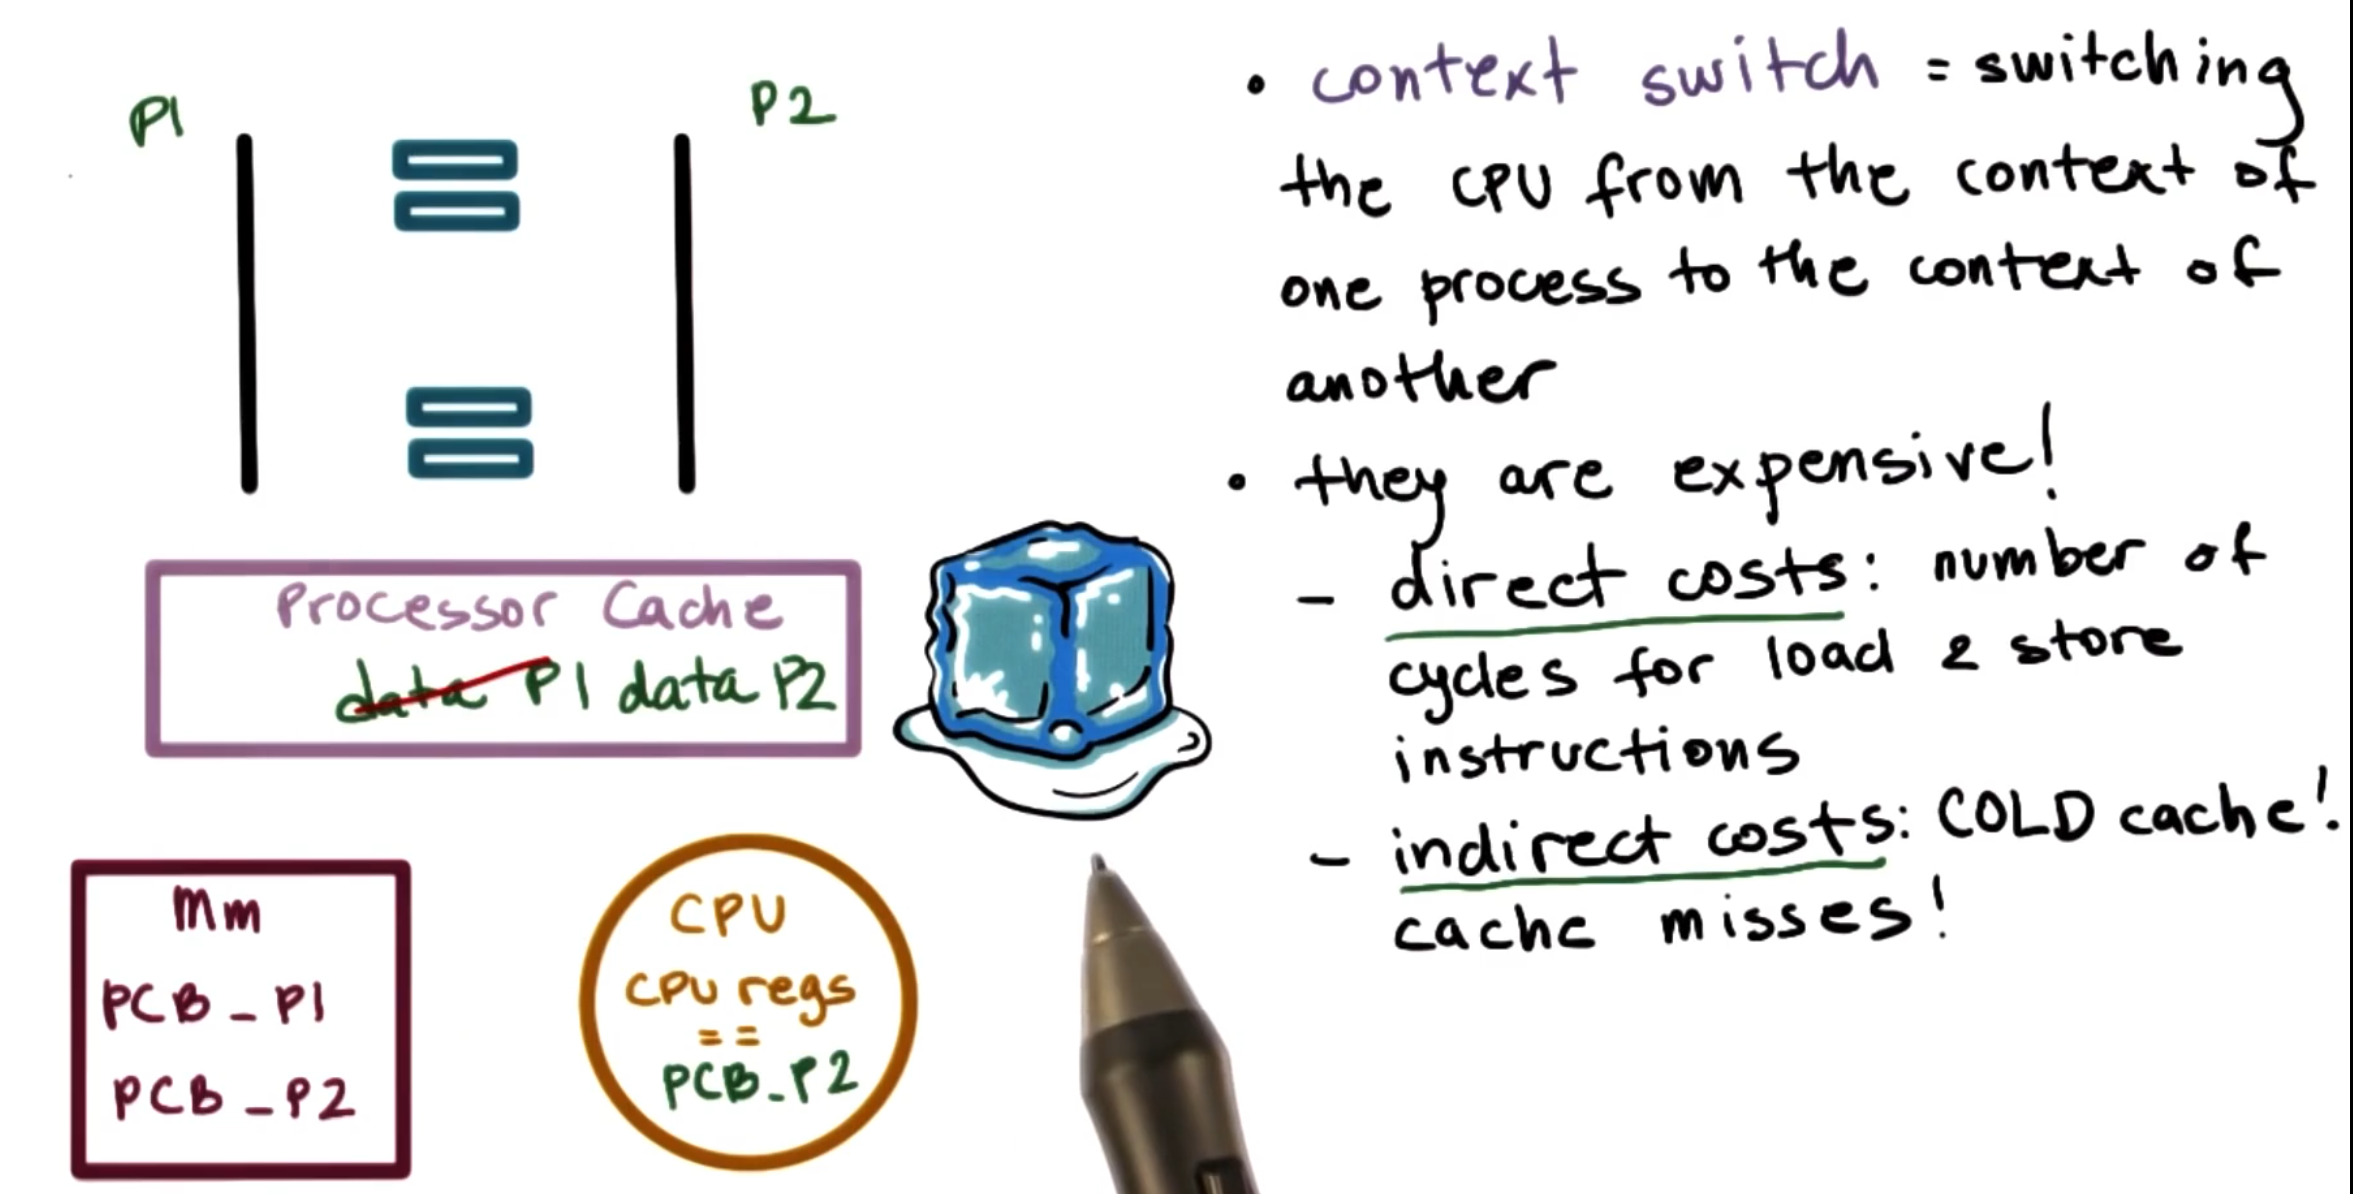 P1
P2
Processor Cache
data P1 data P2
Mm
PCB_P1
PCB_P2
CPU
CPU regs
==
PCB_P2
• context switch = switching
the CPU from the context of
one process to the context of
another
• they are expensive!
- direct costs: number of
cycles for load & store
instructions
- indirect costs: COLD cache!
cache misses!